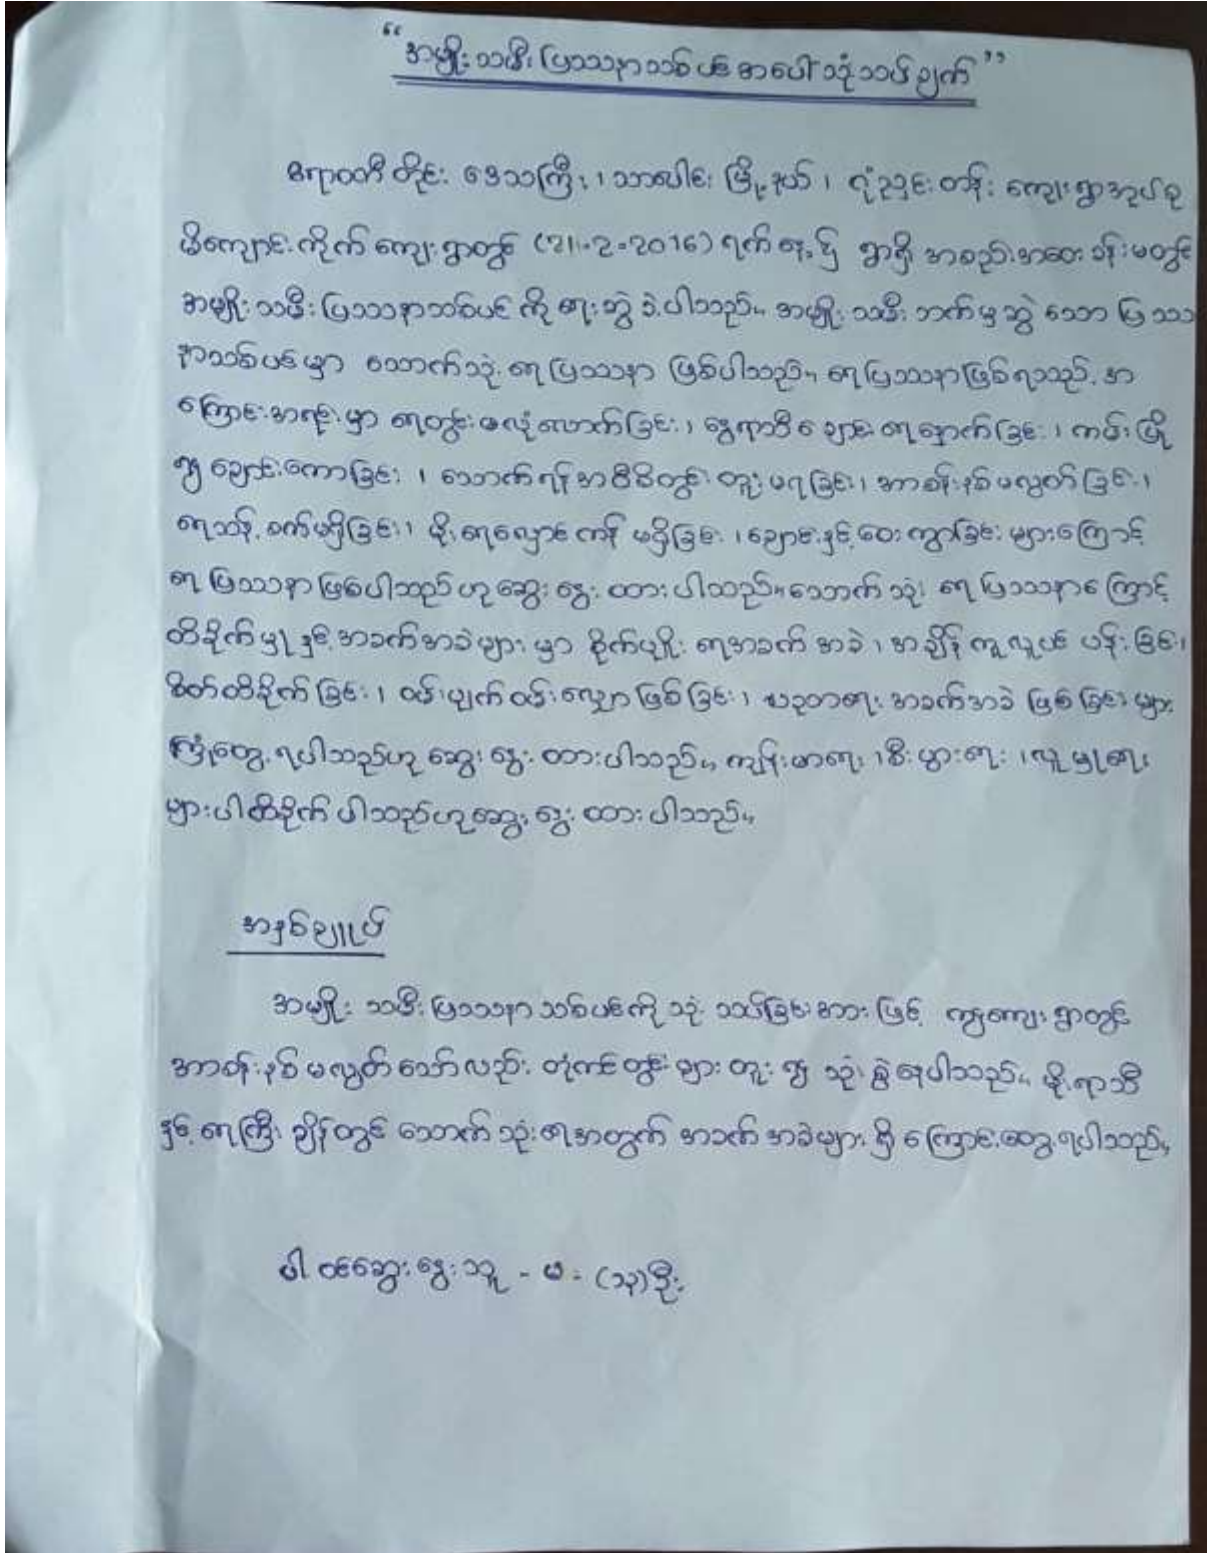 “အမျိုးသမီး ပြဿနာသစ်ပင်အပေါ်သုံးသပ်ချက်”
ဧရာဝတီတိုင်း ဒေသကြီး၊ သာပေါင်း မြို့နယ်၊ ငုံညှင်းတန်း ကျေးရွာအုပ်စု
မိကျောင်းကိုက် ကျေးရွာတွင် (21.2.2016) ရက်နေ့၌ ရွာရှိ အစည်းအဝေးခန်းမတွင်
အမျိုးသမီးပြဿနာသစ်ပင် ကိုရေးဆွဲခဲ့ပါသည်။ အမျိုးသမီးဘက်မှဆွဲသော ပြဿ
နာသစ်ပင်မှာ သောက်သုံးရေပြဿနာ ဖြစ်ပါသည်။ ရေပြဿနာဖြစ်ရသည့် အ
ကြောင်းအရင်းမှာ ရေတွင်းမလုံလောက်ခြင်း၊ နွေရာသီ ချောင်းရေခြောက်ခြင်း၊ ကမ်းပြို
၍ ချောင်းကောခြင်း၊ သောက်ရန်အဝီစိတွင်းတူးမရခြင်း၊ အာဆင်းနစ်မလွတ်ခြင်း၊
ရေသန့်စက်မရှိခြင်း၊ မိုးရေလှောင်ကန် မရှိခြင်း၊ ချောင်းနှင့်ဝေးကွာခြင်းများကြောင့်
ရေပြဿနာဖြစ်ပါသည်ဟုဆွေးနွေးထားပါသည်။ သောက်သုံးရေပြဿနာကြောင့်
ထိခိုက်မှုနှင့်အခက်အခဲများမှာ စိုက်ပျိုးရေအခက်အခဲ၊ အချိန်ကူလူပင်ပန်းခြင်း၊
စိတ်ထိခိုက်ခြင်း၊ ဝမ်းပျက်ဝမ်းလျှောဖြစ်ခြင်း၊ ပညာရေးအခက်အခဲဖြစ်ခြင်းများ
ကြုံတွေ့ရပါသည်ဟုဆွေးနွေးထားပါသည်။ ကျန်းမာရေး၊ စီးပွားရေး၊ လူမှုရေး
များပါထိခိုက်ပါသည်ဟုဆွေးနွေးထားပါသည်။
အနှစ်ချုပ်
အမျိုးသမီးပြဿနာသစ်ပင်ကိုသုံးသပ်ခြင်းအားဖြင့် ကျွနု်ကျေးရွာတွင်
အာဆင်းနစ်မလွတ်သော်လည်း တုံကင်တွင်းများတူး၍ သုံးစွဲနေပါသည်။ မိုးရာသီ
နှင့်ရေကြီးချိန်တွင် သောက်သုံးရေအတွက် အခက်အခဲများရှိကြောင်းတွေ့ရပါသည်။
ပါဝင်ဆွေးနွေးသူ - မ - (၁၃) ဦး